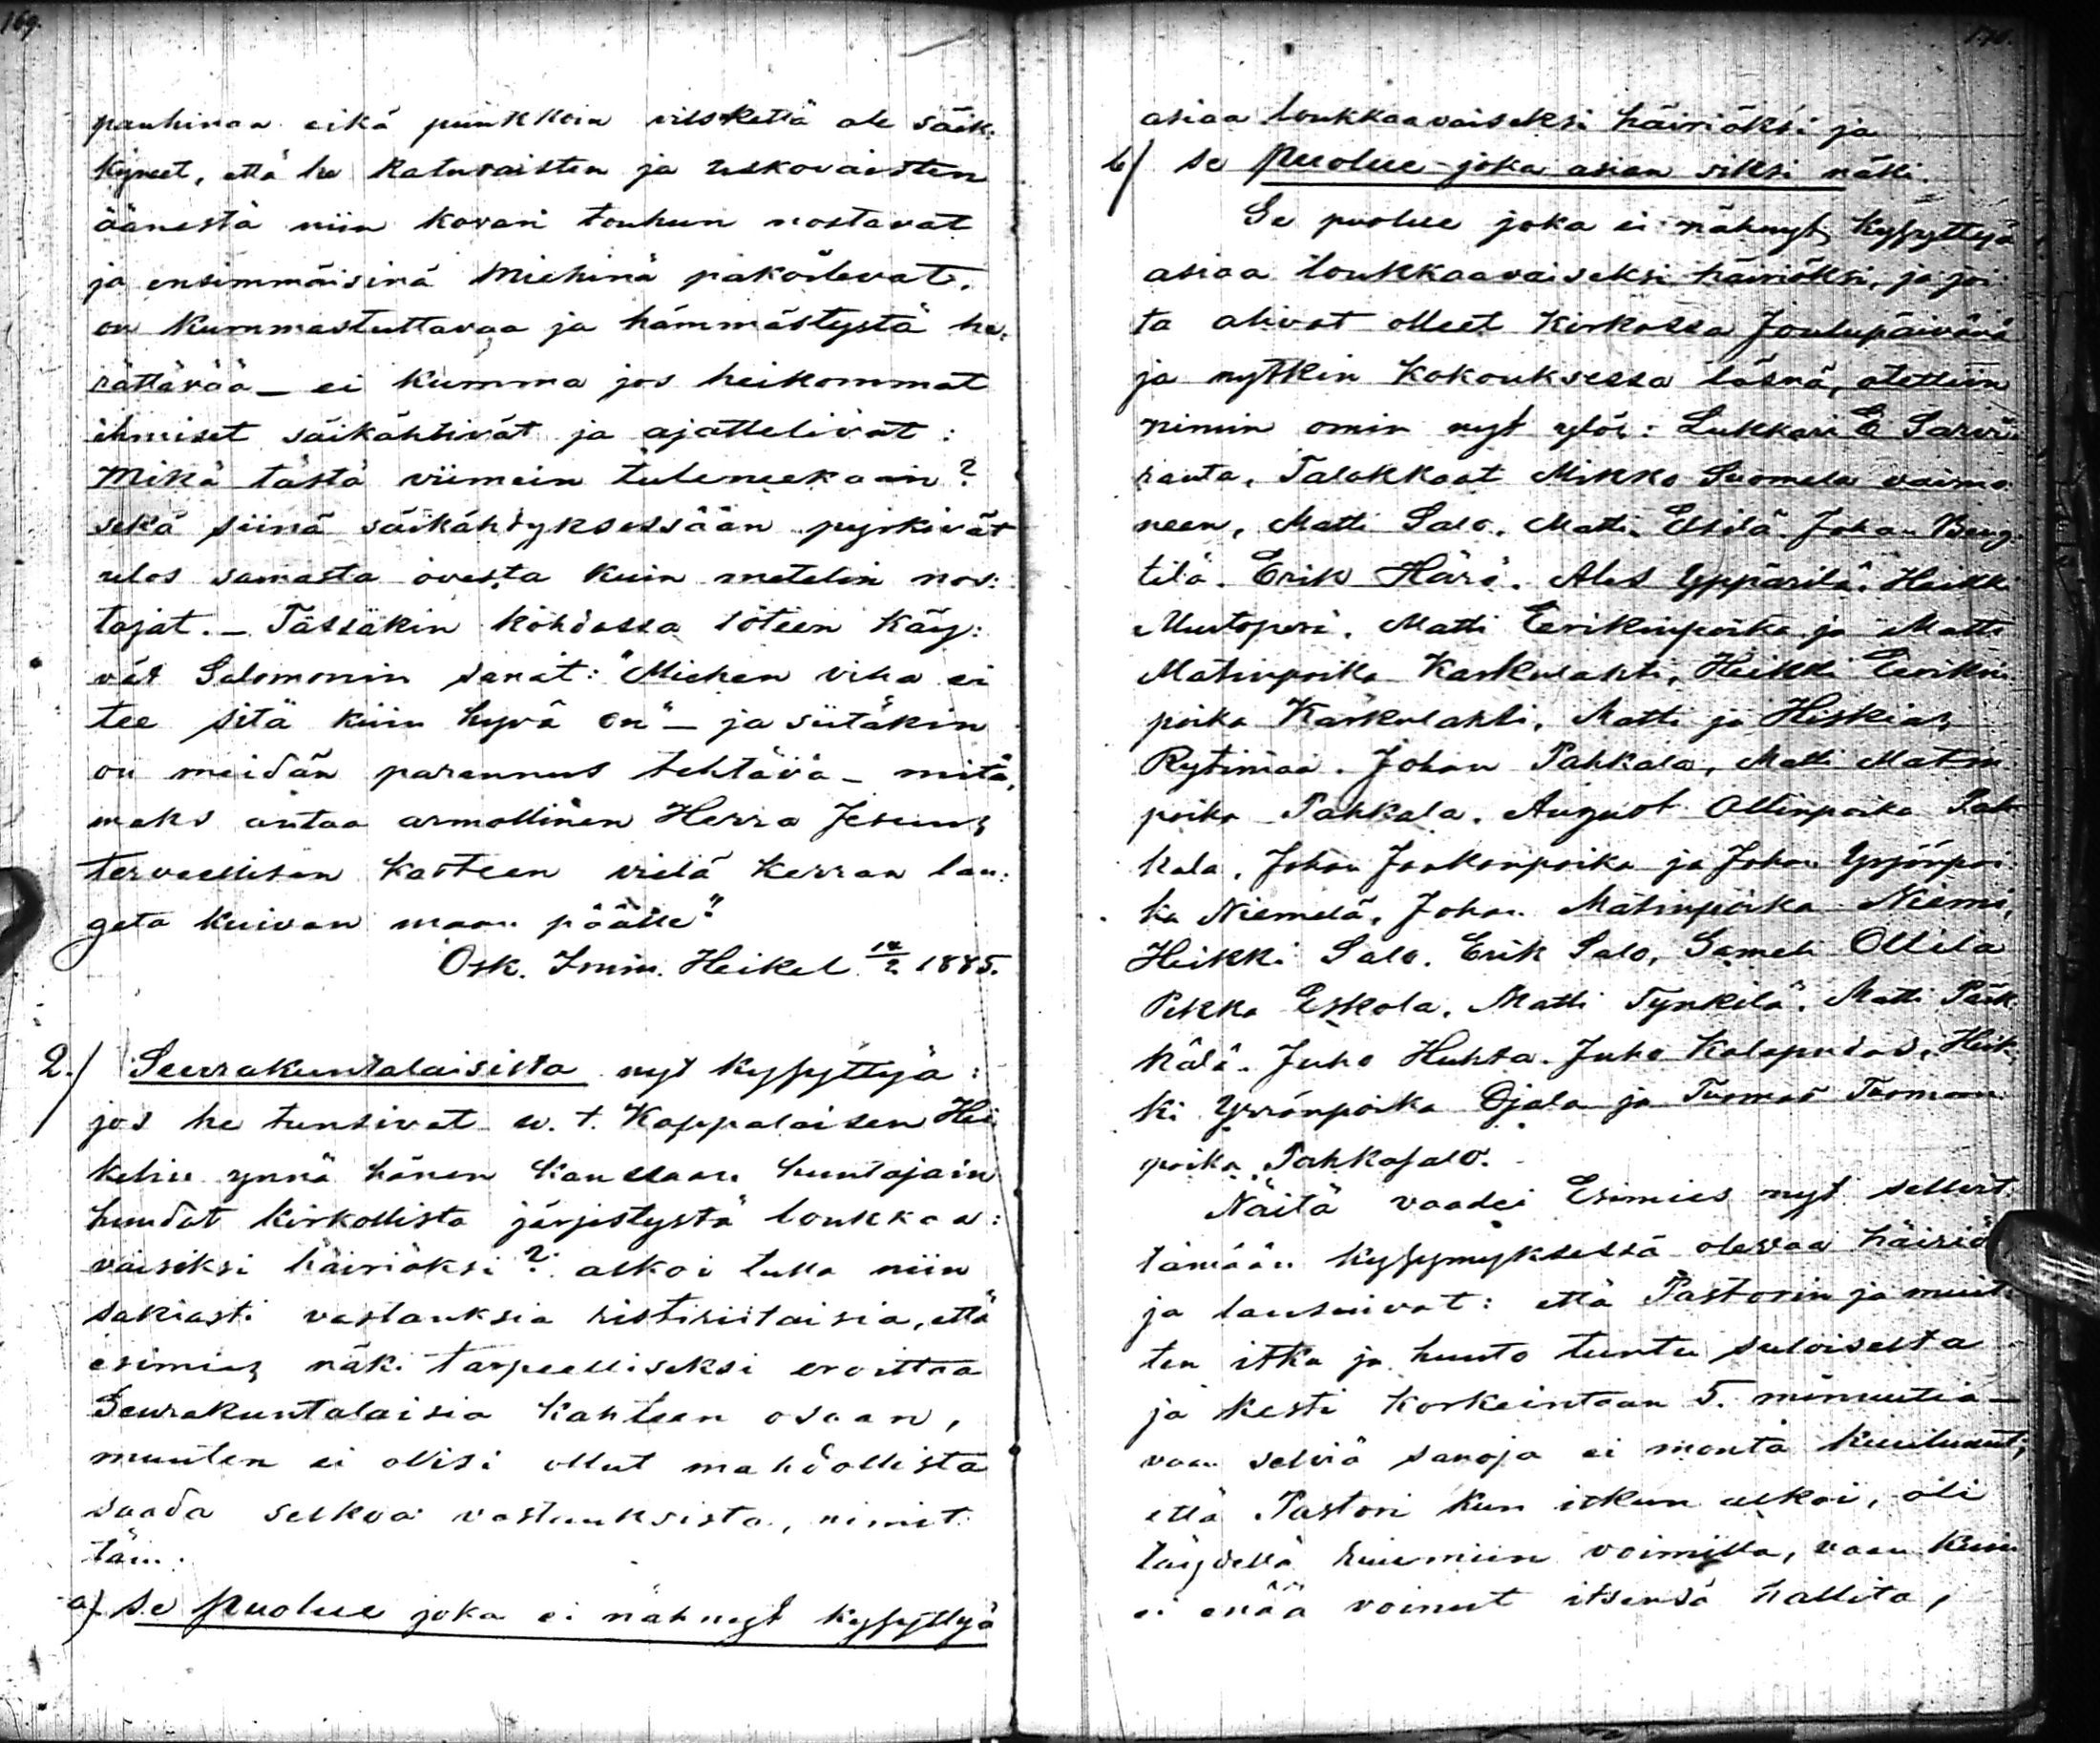 169.
pauhinaa eikä puukkoin vilskettä ole säik:
kyneet, että he katuvaisten ja uskovaisten
äänestä niin kovan touhun nostavat
ja ensimmäisinä Miehinä pakoilevat,
on kummastuttavaa ja hämmästystä he:
rättävää _ ei kumma jos heikommat
ihmiset säikähtivät ja ajattelivat:
Mikä tästä viimein tuleneekaan?
sekä siinä säikähdyksessään pyrkivät
ulos samasta ovesta kuin metelin nos:
tajat. _ Tässäkin kohdassa toteen käy:
vät Salomonin sanat: "Miehen viha ei
tee sitä kuin hyvä on" _ ja siitäkin
on meidän parannus tehtävä _ mitä,
maks antaa armollinen Herra Jesus
terveellisen kasteen vielä kerran lan:
geta kuivan maan päälle"
Osk. Imm. Heikel 14/2 1885.
2.) Seurakuntalaisilta nyt kysyttyä:
jos he tunsivat w. t. Kappalaisen Hei
kelin ynnä hänen kanssaan huutajain
huudot kirkollista järjestystä loukkaa:
vaiseksi häiriöksi? alkoi tulla niin
sakiasti vastauksia ristiriitaisia, että
esimies näki tarpeelliseksi eroittaa
Seurakuntalaisia kahteen osaan,
muuten ei ollisi ollut mahdollista
saada selkoa vastauksista, nimit:
täin.
a) se puolue joka ei nähnyt kysyttyä
170.
asiaa loukkaavaiseksi häiriöksi ja
b) se puolue joka asian siksi näki.
Se puolue joka ei nähnyt kysyttyä
asiaa loukkaavaiseksi häiriöksi, ja joi
ta olivat olleet Kirkossa Joulupäivänä
ja nytkin Kokouksessa läsnä, otettiin
nimin omin nyt ylös: Lukkari E Sarvi
ranta, Talokkaat Mikko Suomela vaimo
neen, Matti Salo, Matti Ellilä Johan Beng
tilä. Erik Härö. Ales Yppärilä, Heikk
Mustoperä, Matti Eerikinpoika ja Matti
Matinpoika Karhulahti, Heikki Eerikin
poika Karhulahti, Matti ja Hiskias
Rytimäa. Johan Pahkala, Matti Matin
poika Pahkala, August Ollinpoika Pah
kala, Johan Jaakonpoika ja Johan Yrjönpoi
ka Niemelä, Johan Matinpoika Niemi,
Heikki Salo, Erik Salo, Sameli Ollila
Pekka Eskola, Matti Tynkilä. Matti Park
kälä. Juho Huhta. Juho Kalapudas, Heik:
ki Yrrönpoika Ojala ja Tuomas Tuomaan
poika Pahkasalo.
Näitä vaadei Esimies nyt sellert
tämään kysymyksessä olevaa häiriö
ja lausuivat: että Pastorin ja muit
ten itku ja huuto tuntu suloiselta
ja kesti korkeintaan 5. minuutia _
vaan selviä sanoja ei monta kuulunut,
että Pastori kun itkun alkoi, oli
täydellä ruumiin voimilla, vaan kuin
ei enää voinut itsensä hallita,